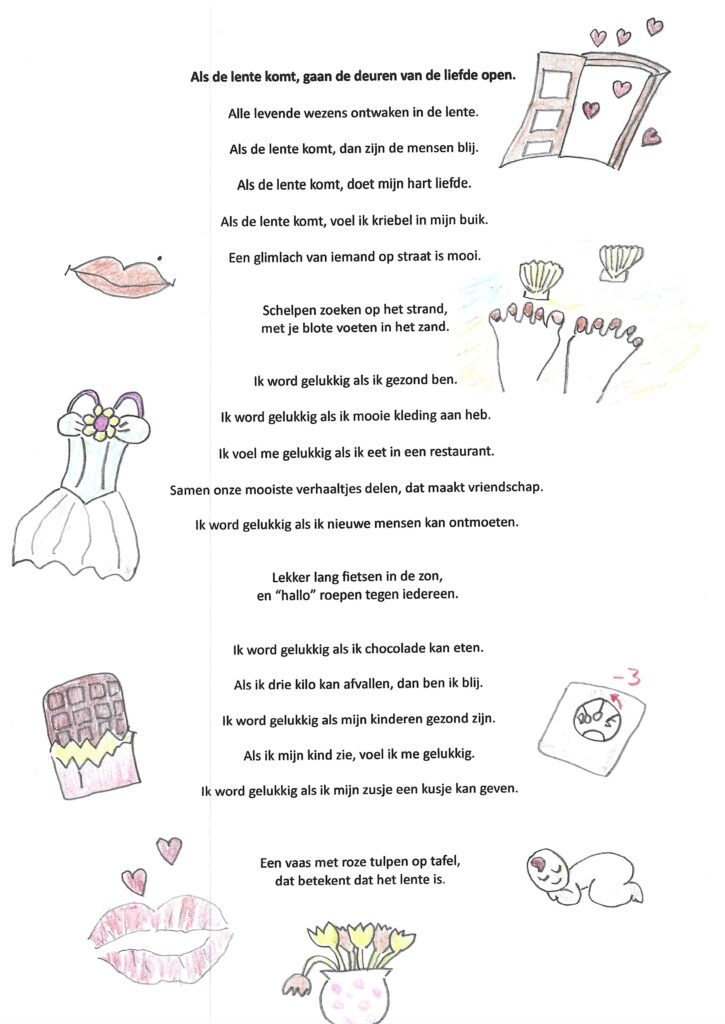 Als de lente komt, gaan de deuren van de liefde open.
Alle levende wezens ontwaken in de lente.
Als de lente komt, dan zijn de mensen blij.
Als de lente komt, doet mijn hart liefde.
Als de lente komt, voel ik kriebel in mijn buik.
Een glimlach van iemand op straat is mooi.
Schelpen zoeken op het strand,
met je blote voeten in het zand.
Ik word gelukkig als ik gezond ben.
Ik word gelukkig als ik mooie kleding aan heb.
Ik voel me gelukkig als ik eet in een restaurant.
Samen onze mooiste verhaaltjes delen, dat maakt vriendschap.
Ik word gelukkig als ik nieuwe mensen kan ontmoeten.
Lekker lang fietsen in de zon,
en “hallo” roepen tegen iedereen.
Ik word gelukkig als ik chocolade kan eten.
-3
Als ik drie kilo kan afvallen, dan ben ik blij.
Ik word gelukkig als mijn kinderen gezond zijn.
Als ik mijn kind zie, voel ik me gelukkig.
Ik word gelukkig als ik mijn zusje een kusje kan geven.
Een vaas met roze tulpen op tafel,
dat betekent dat het lente is.